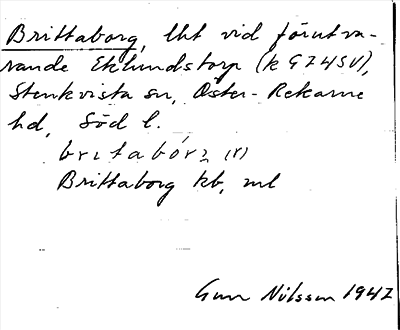 Brittaborg, lht vid förutva-
rande Eklundstorp (k G74SV),
Stenkvista sn, Öster-Rekarne
hd, Söd l.
britabórj (r)
Brittaborg kb, ml
Gun Nilsson 1947